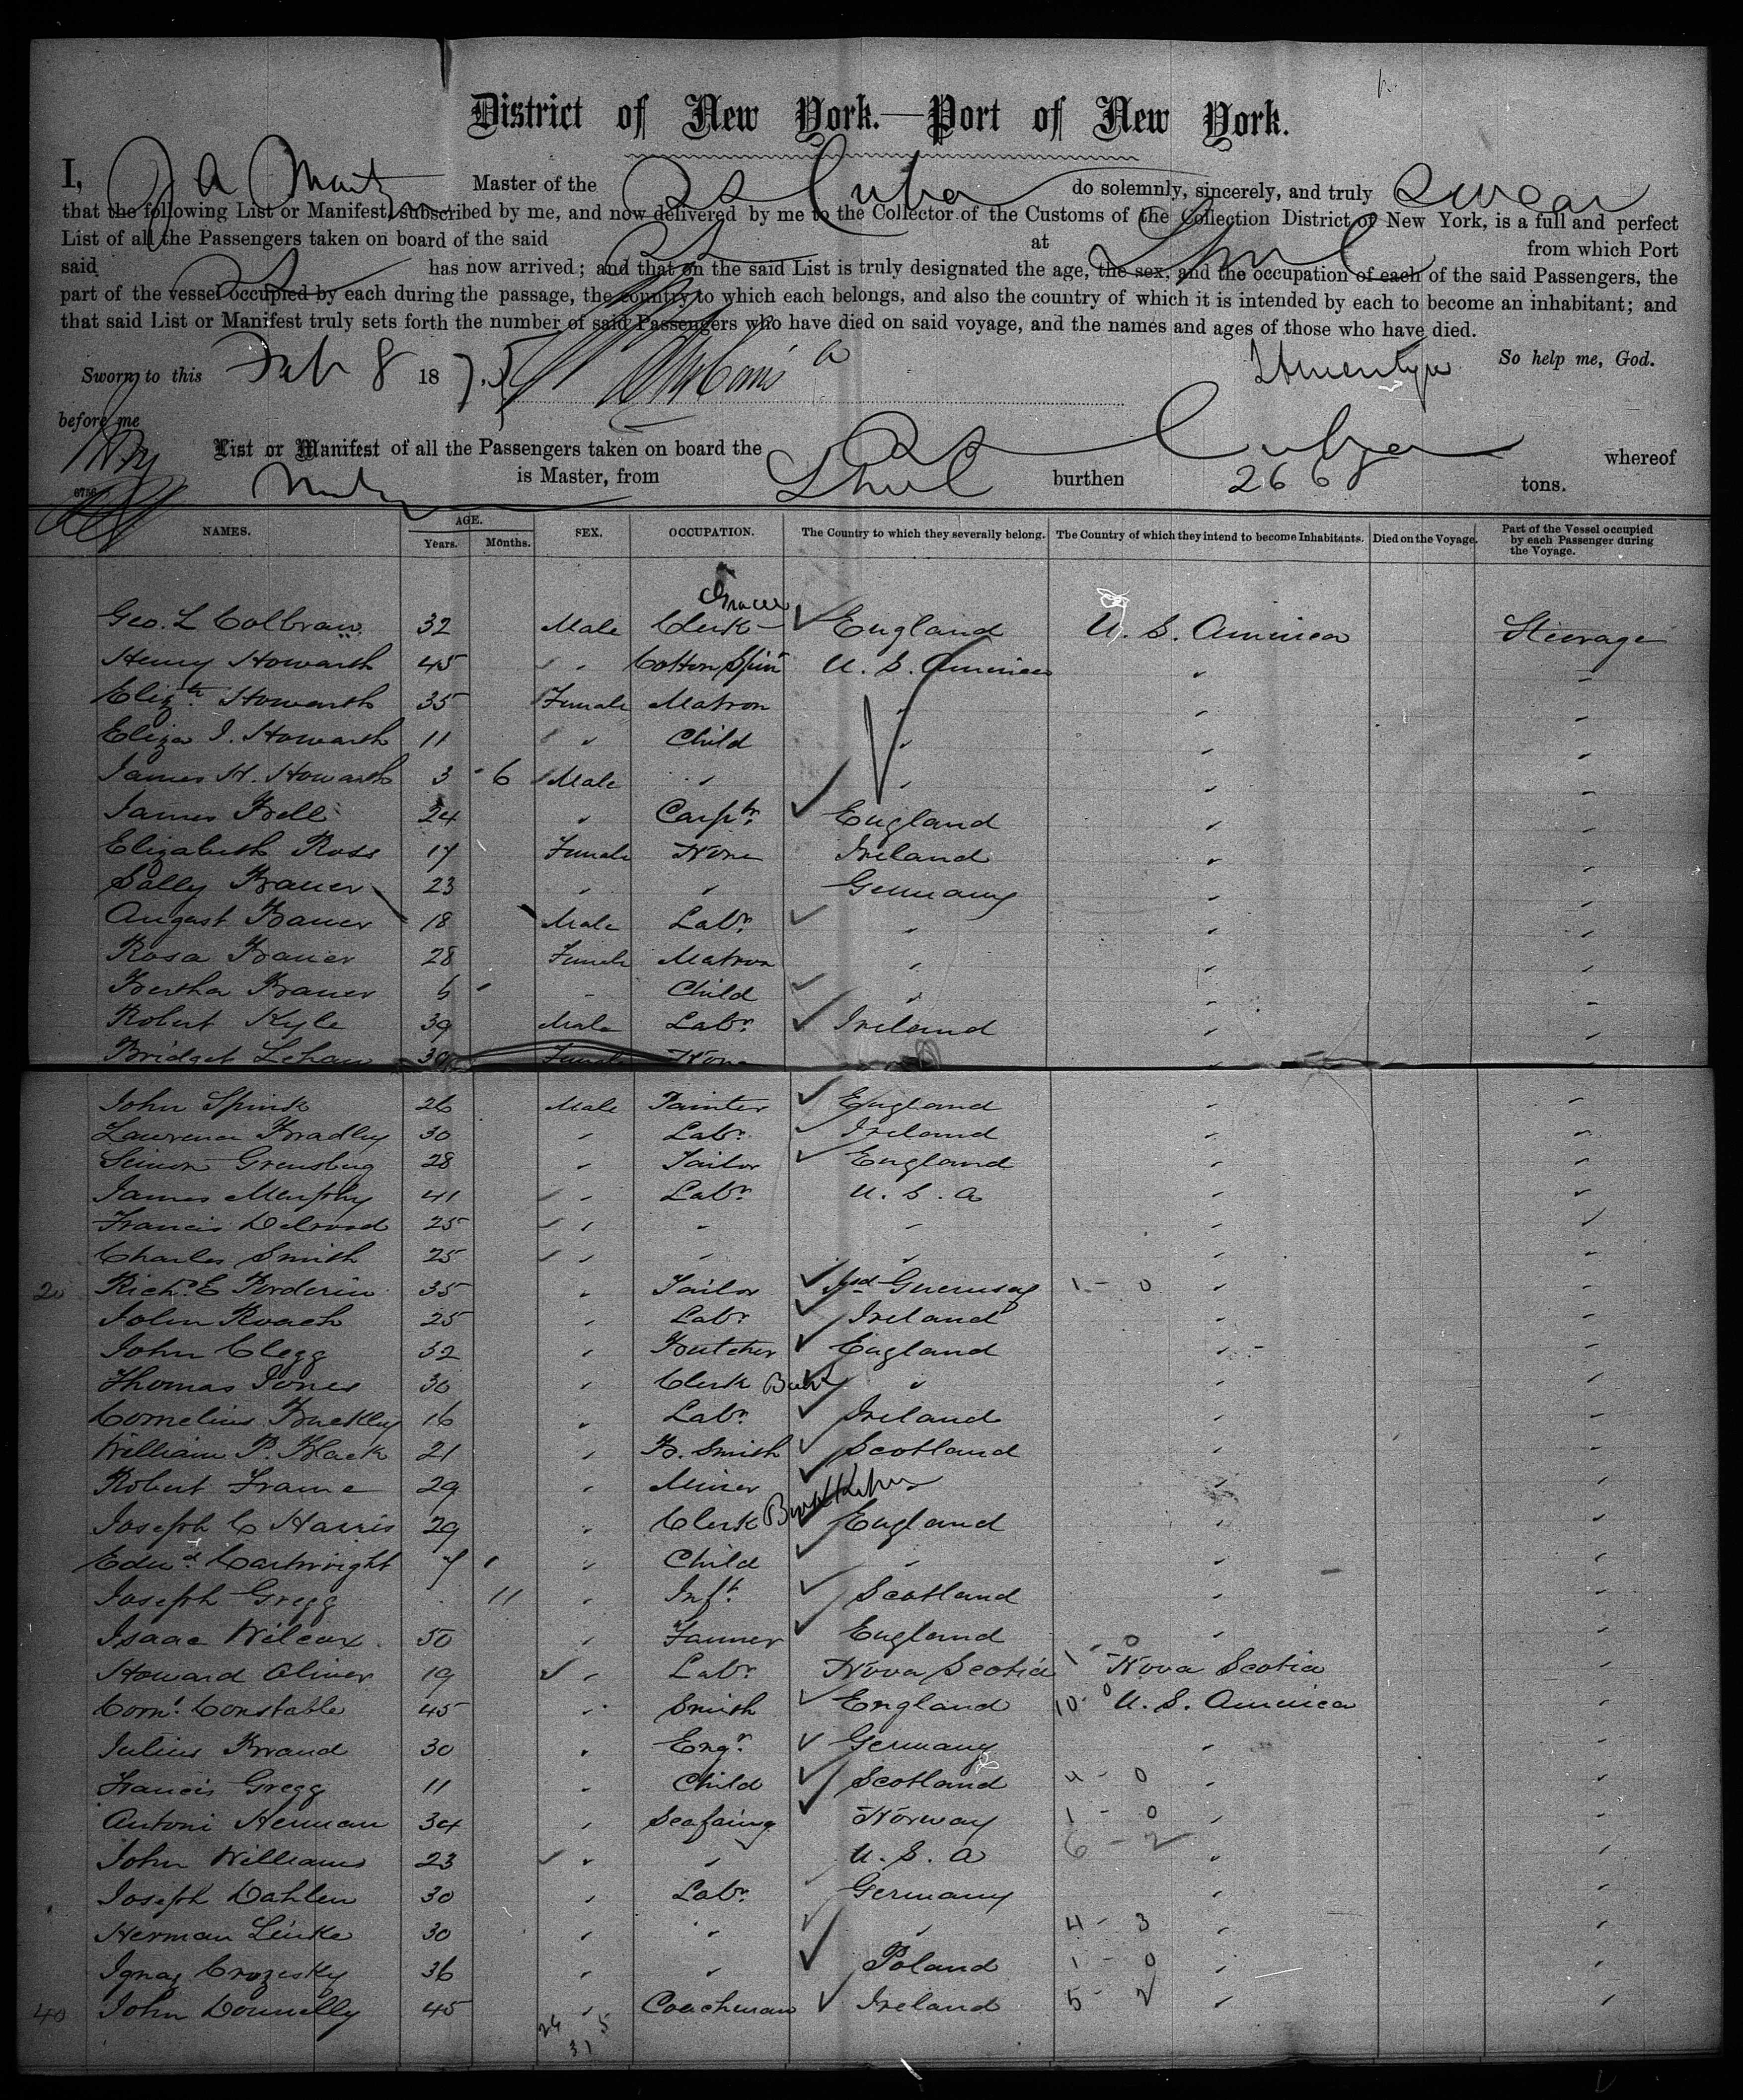 District of New York.—Port of New York.
I, J A Martyn Master of the SS Cuba do solemnly, sincerely, and truly Swear
that the following List or Manifest, subscribed by me, and now delivered by me to the Collector of the Customs of the Collection District of New York, is a full and perfect
List of all the Passengers taken on board of the said SS at Lpool from which Port
said SS has now arrived; and that on the said List is truly designated the age, the sex, and the occupation of each of the said Passengers, the
part of the vessel occupied by each during the passage, the country to which each belongs, and also the country of which it is intended by each to become an inhabitant; and
that said List or Manifest truly sets forth the number of said Passengers who have died on said voyage, and the names and ages of those who have died.
So help me, God.
Sworn to this Feb 8 1875
before me
List or Manifest of all the Passengers taken on board the SS Cuba whereof
is Master, from Lpool burthen 2668 tons.
NAMES. AGE. Years. Months. SEX. OCCUPATION. The Country to which they severally belong. The Country of which they intend to become Inhabitants. Died on the Voyage. Part of the Vessel occupied by each Passenger during the Voyage.
Geo. L Colbran 32 Male Clerk England U. S. America Steerage
Henry Howarth 45 " Cotton Spinr U. S. America " "
Elizth Howarth 35 Female Matron " " "
Eliza J. Howarth 11 " Child " " "
James H. Howarth 3 6 Male " " " "
James Bell 24 " Carptr England " "
Elizabeth Ross 17 Female None Ireland " "
Sally Bauer 23 " " Germany " "
August Bauer 18 Male Labr " " "
Rosa Bauer 28 Female Matron " " "
Bertha Bauer 6 " Child " " "
Robert Kyle 39 Male Labr Ireland " "
Bridget Lehan 30 Female None " "
John Spink 26 Male Painter England " "
Lawrence Bradley 30 " Labr Ireland " "
Simon Grensburg 28 " Tailor England " "
James Murphy 41 " Labr U. S. A " "
Francis Delrood 25 " " " " "
Charles Smith 25 " " " " "
20 Richd E Porderin 35 " Tailor Isd Guernsey 1 - 0 " "
John Roach 25 " Labr Ireland " "
John Clegg 32 " Butcher England " "
Thomas Jones 30 " Clerk " " "
Cornelius Buckley 16 " Labr Ireland " "
William P. Black 21 " B. Smith Scotland " "
Robert Frame 29 " Miner " " "
Joseph C Harris 29 " Clerk Book Keper England " "
Edwd Cartwright 7 " Child " " "
Joseph Gregg 11 " Inft Scotland " "
Isaac Wilcox 50 " Farmer England " "
Howard Oliver 19 " Labr Nova Scotia 1 0 Nova Scotia "
Corns Constable 45 " Smith England 10 - 0 U. S. America "
Julius Brand 30 " Engr Germany " "
Francis Gregg 11 " Child Scotland 4 - 0 " "
Antoni Herman 34 " Seafaring Norway 1 - 0 " "
John Williams 23 " " U. S. A 6 - 2 " "
Joseph Dahlen 30 " Labr Germany " "
Herman Linke 30 " " " 4 - 3 " "
Ignaz Crozesky 36 " " Poland 1 - 0 " "
40 John Donnelly 45 " Coachman Ireland 5 - 2 " "
26 5
31